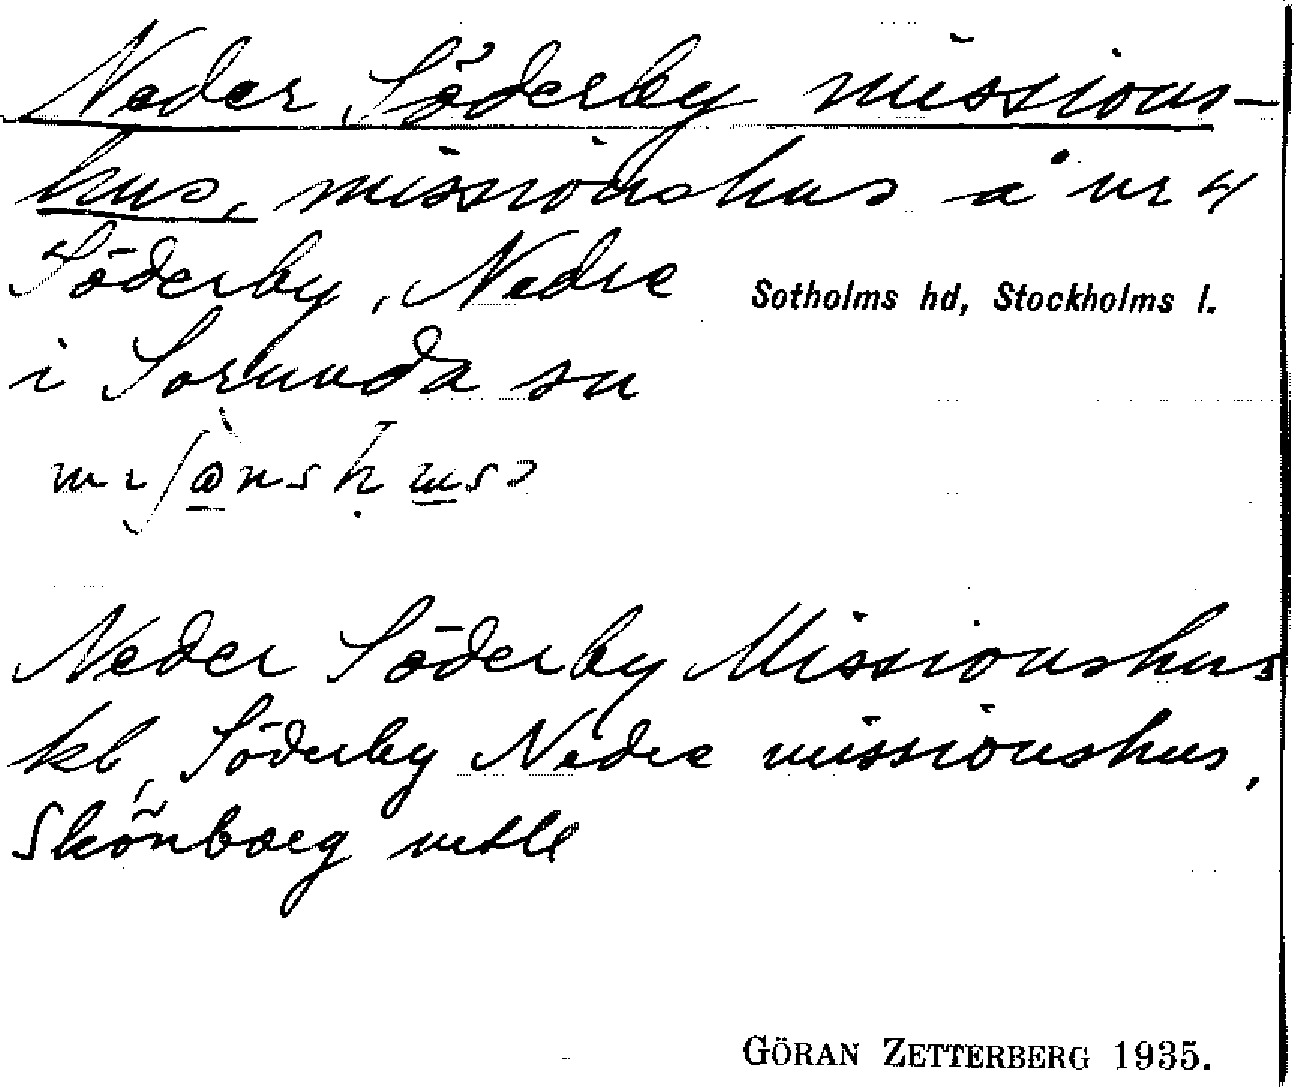 Neder Söderby missions-
hus, missionshus å nr 4
Söderby, Nedre
Sotholms hd, Stockholms l.
i Sorunda sn
Neder Söderby Missionshus
kb, Söderby Nedre missionshus,
Skönberg
GÖRAN ZETTERBERG 1935.